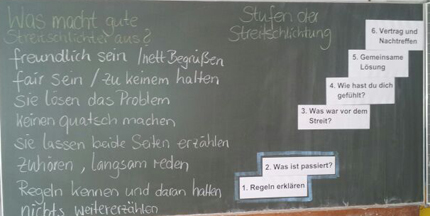 Was macht gute
Streitschlichter aus?
freundlich sein / nett Begrüßen
fair sein / zu keinem halten
sie lösen das Problem
keinen quatsch machen
sie lassen beide Seiten erzählen
Zuhören, langsam reden
Regeln kennen und daran halten
nichts weitererzählen
Stufen der
Streitschlichtung
6. Vertrag und
Nachtreffen
5. Gemeinsame
Lösung
4. Wie hast du dich
gefühlt?
3. Was war vor dem
Streit?
2. Was ist passiert?
1. Regeln erklären